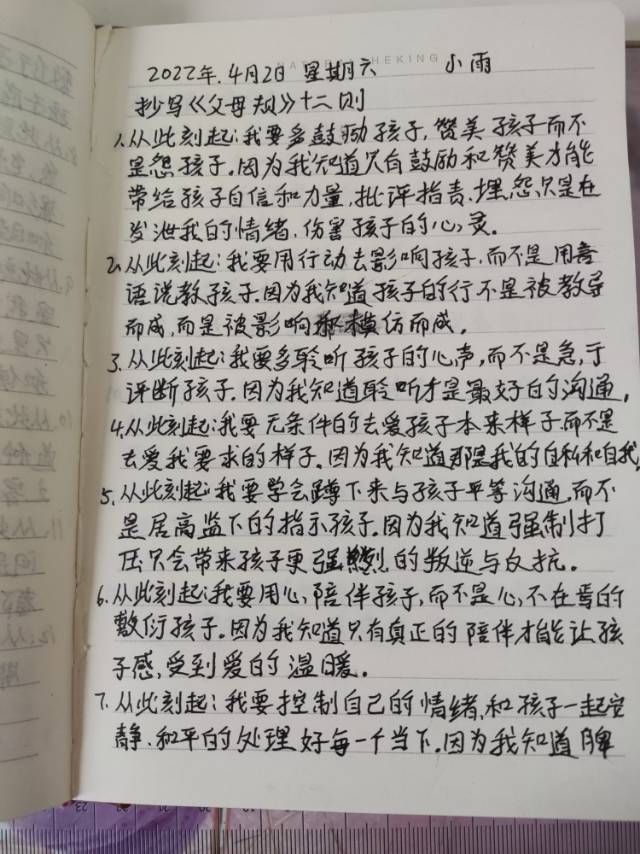 2022年.4月2日 星期六 小雨
抄写《父母规》十二则
1.从此刻起:我要多鼓励孩子,赞美孩子而不
是怨孩子。因为我知道只有鼓励和赞美才能
带给孩子自信和力量,批评指责.埋怨只是在
发泄我的情绪.伤害孩子的心灵。
2.从此刻起:我要用行动去影响孩子,而不是用言
语说教孩子.因为我知道孩子的行不是被教导
而成,而是被影响和模仿而成。
3.从此刻起:我要多聆听孩子的心声,而不是急于
评断孩子.因为我知道聆听才是最好的沟通,
4.从此刻起:我要无条件的去爱孩子本来样子.而不是
去爱我要求的样子。因为我知道那是我的自私和自我,
5.从此刻起:我要学会蹲下来与孩子平等沟通,而不
是居高监下的指示孩子.因为我知道强制打
压只会带来孩子更强烈的叛逆与反抗。
6.从此刻起:我要用心陪伴孩子,而不是心不在焉的
敷衍孩子。因为我知道只有真正的陪伴才能让孩
子感受到爱的温暖。
7.从此刻起:我要控制自己的情绪,和孩子一起安
静.和平的处理好每一个当下.因为我知道脾